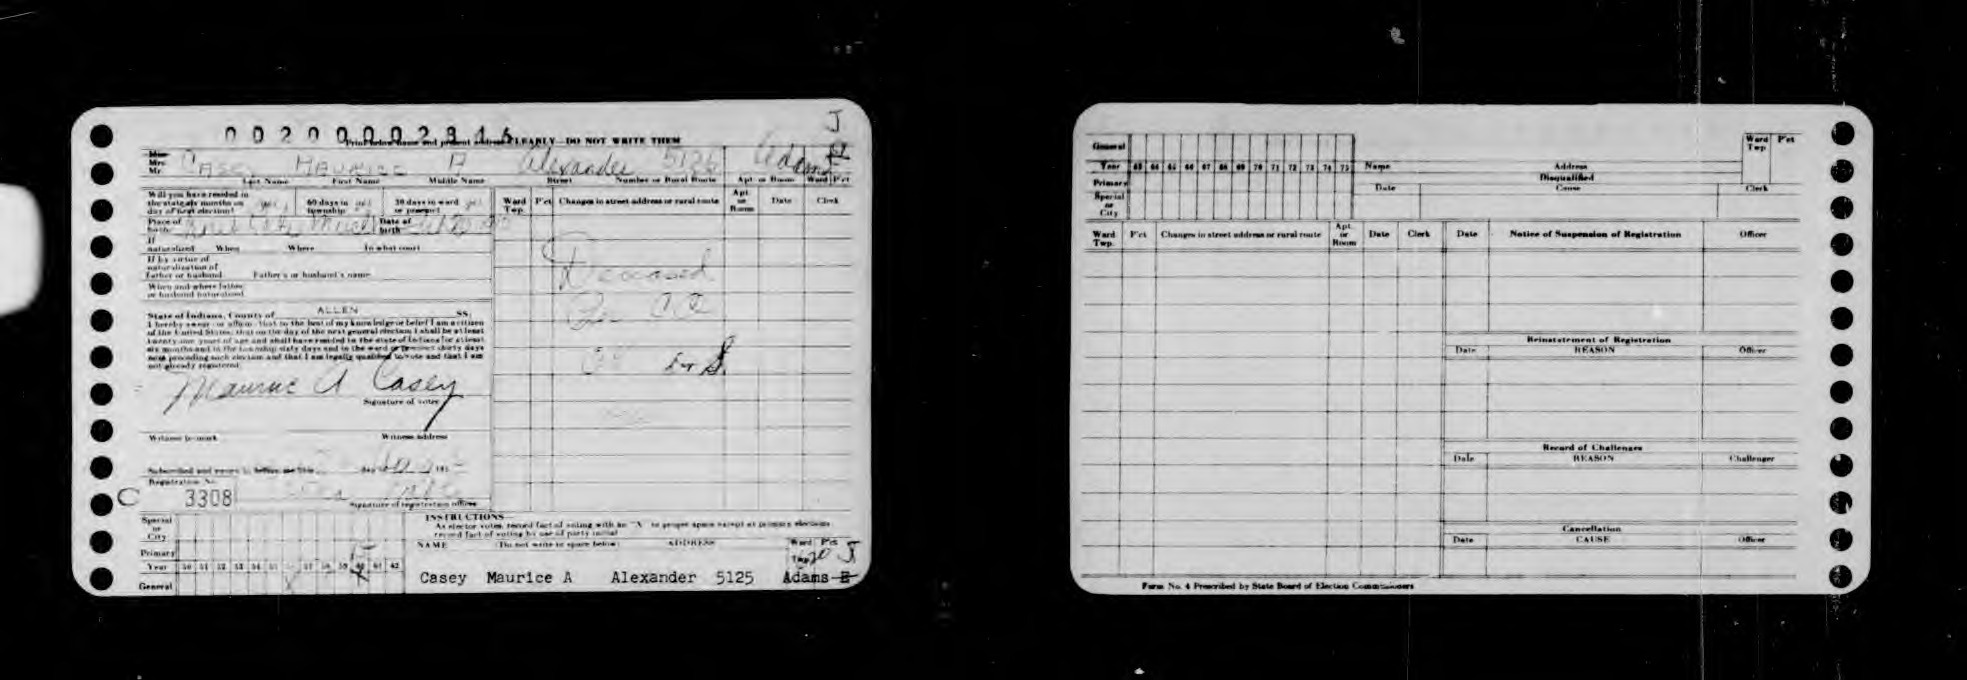 J
0 0 2 0 0 0 0 2 8 4 6
Print below name and present address CLEARLY—DO NOT WRITE THEM
Miss
Mrs.
Mr.
CASEY MAURICE A Alexander 5126 Adams
Last Name First Name Middle Name Street Number or Rural Route Apt. or Room Ward P'ct
Will you have resided in the state six months on day of next election? yes 60 days in township? yes 30 days in ward or precinct yes
Place of birth Date of birth
If naturalized When Where In what court
If by virtue of naturalization of father or husband Father's or husband's name
When and where father or husband naturalized
State of Indiana, County of ALLEN SS
I hereby swear or affirm that to the best of my knowledge or belief I am a citizen
of the United States, that on the day of the next general election I shall be at least
twenty-one years of age and shall have resided in the state of Indiana for at least
six months and in the township sixty days and in the ward or precinct thirty days
next preceding such election and that I am legally qualified to vote and that I am
not already registered.
Maurice A Casey
Signature of voter
Witness to mark Witness address
Subscribed and sworn to before me this day of
Registration No.
C 3308
Signature of registration officer
Ward Twp. P'ct Changes in street address or rural route Apt. or Room Date Clerk
Deceased
Special or City
Primary
Year 50 51 52 53 54 55 57 58 59 60 61 62
General
INSTRUCTIONS—
As elector votes, record fact of voting with an "X" in proper space except at primary elections
record fact of voting by use of party initial
NAME (Do not write in space below) ADDRESS Ward Twp. P'ct
J
Casey Maurice A Alexander 5125 Adams E
General
Year 63 64 65 66 67 68 69 70 71 72 73 74 75
Primary
Special or City
Name Address Ward Twp P'ct
Disqualified
Date Cause Clerk
Ward Twp. P'ct Changes in street address or rural route Apt. or Room Date Clerk
Date Notice of Suspension of Registration Officer
Reinstatement of Registration
Date REASON Officer
Record of Challenges
Date REASON Challenger
Cancellation
Date CAUSE Officer
Form No. 4 Prescribed by State Board of Election Commissioners